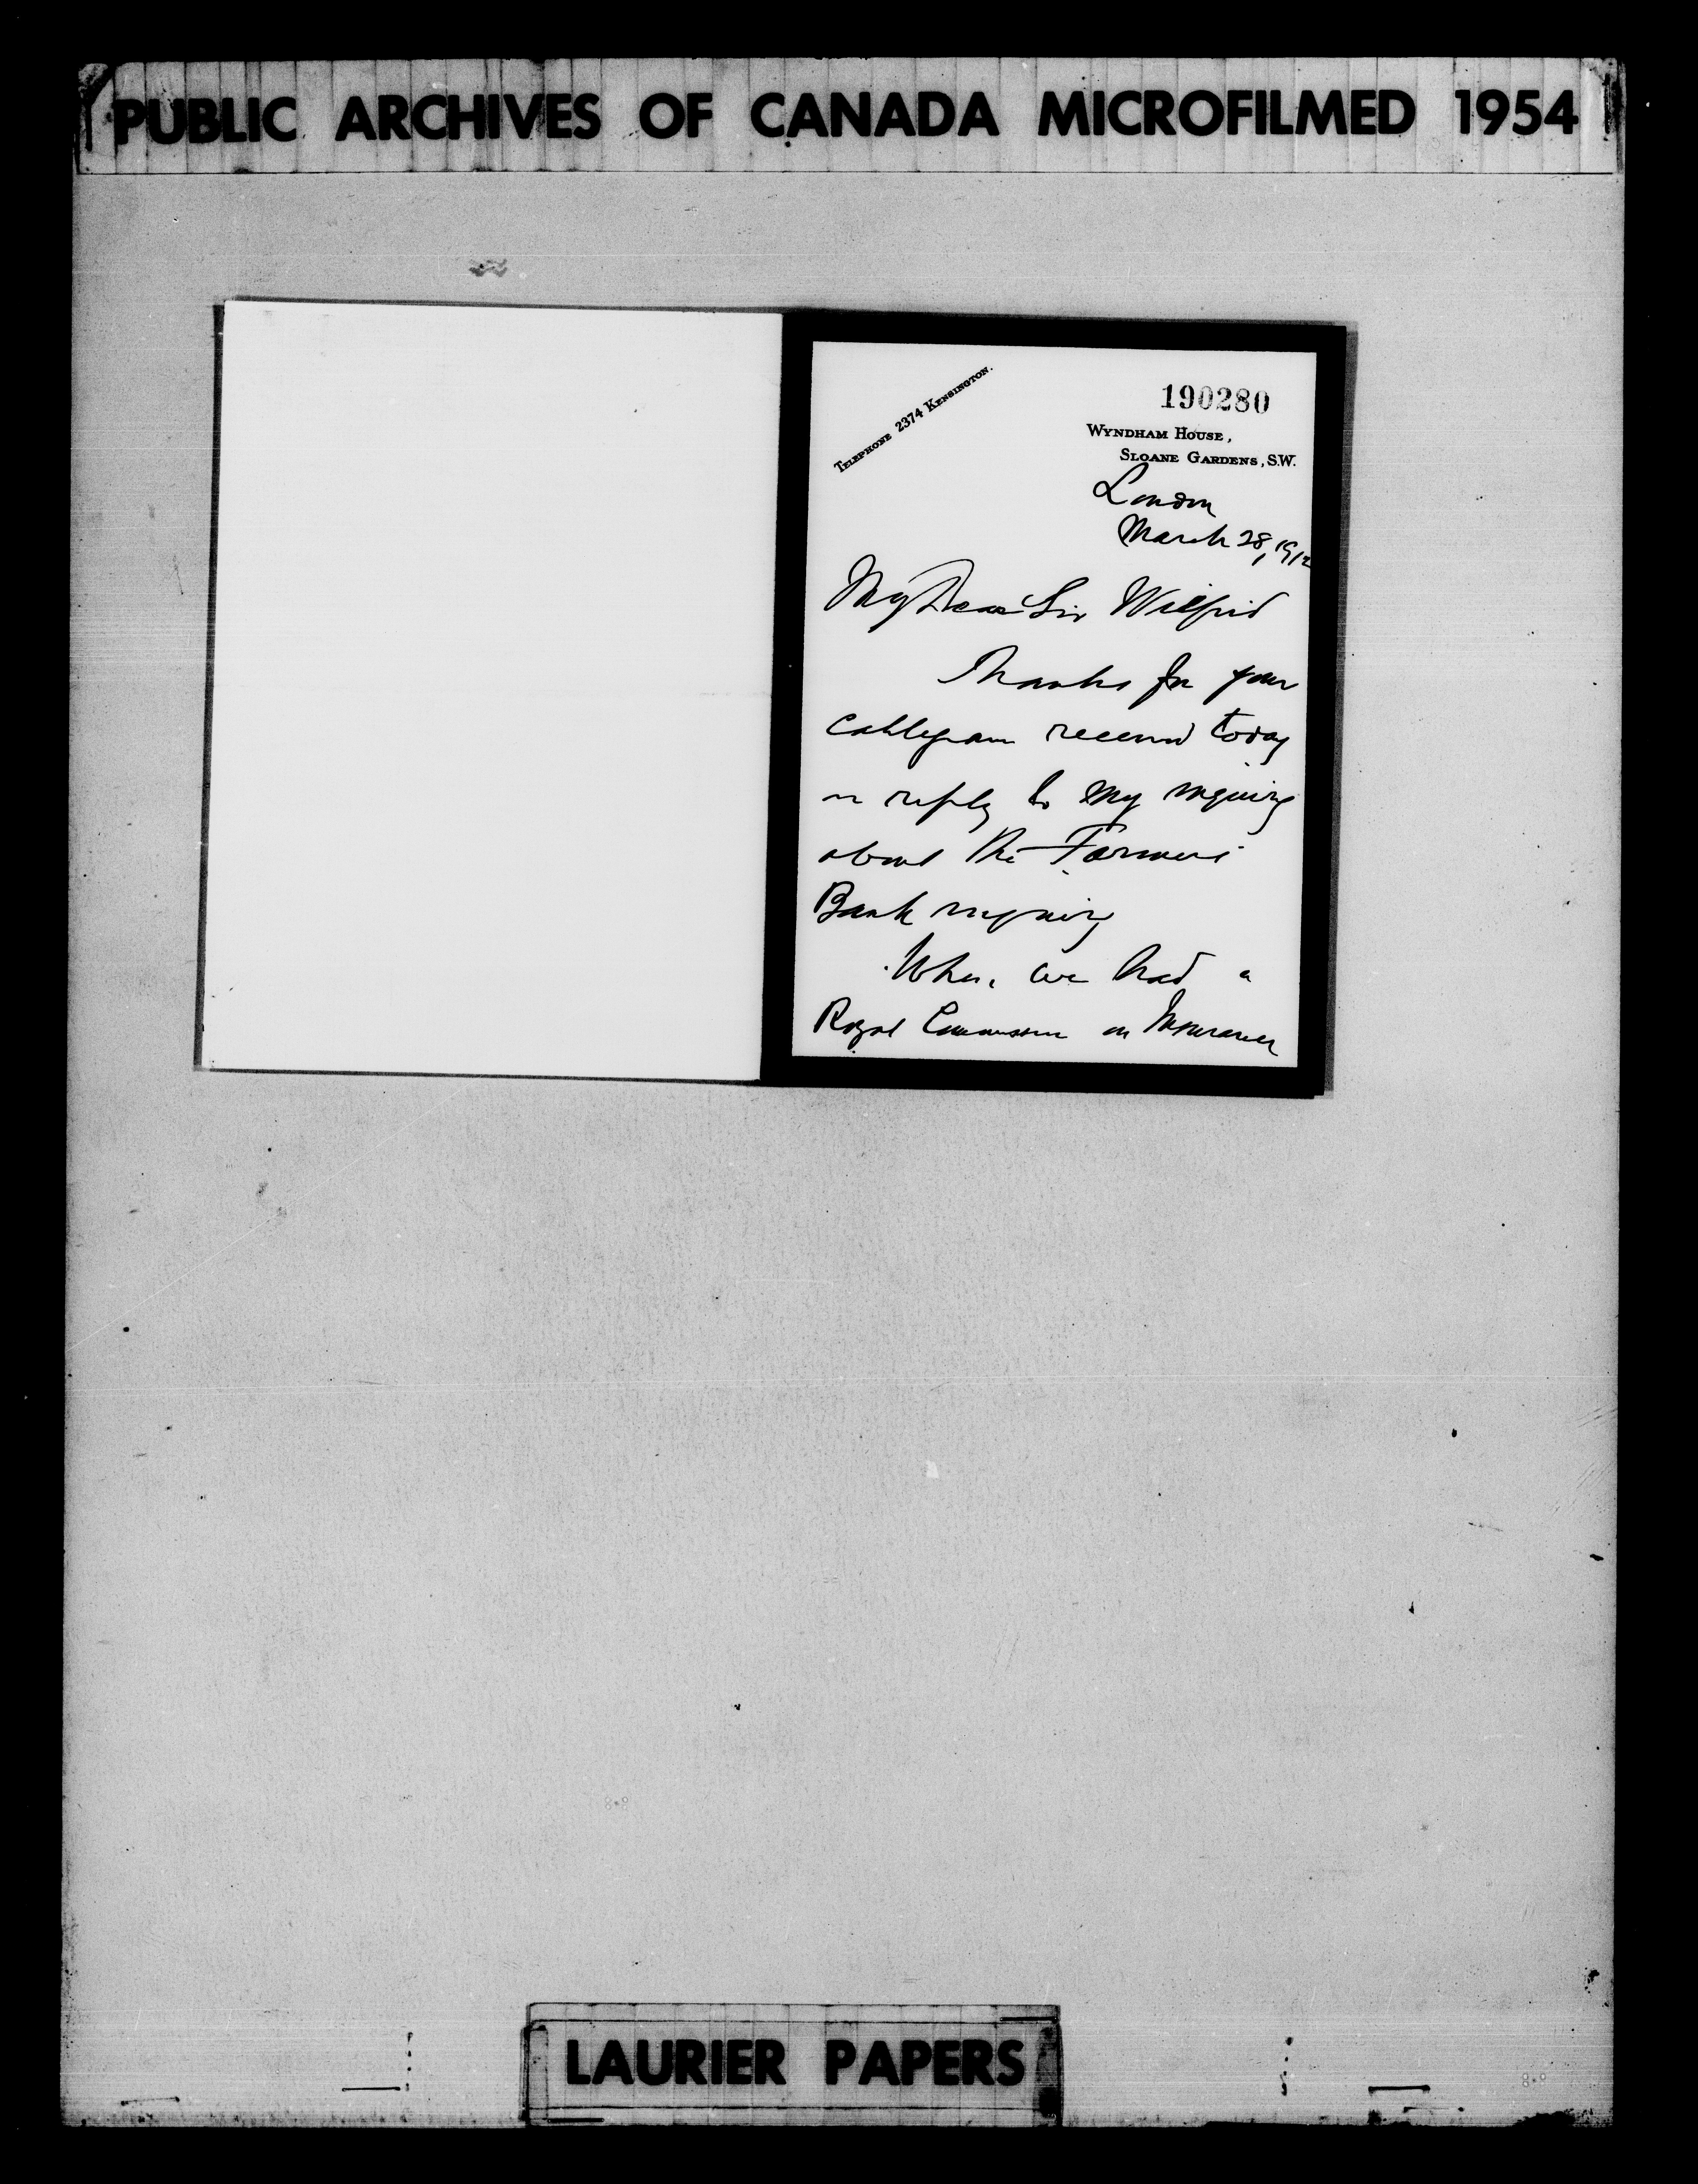 PUBLIC ARCHIVES OF CANADA MICROFILMED 1954
190280
TELEPHONE 2374 KENSINGTON.
WYNDHAM HOUSE,
SLOANE GARDENS, S.W.
London
March 28, 1912
My Dear Sir Wilfrid
Thanks for your
cablegram received today
in reply to my inquiry
about the Farmers
Bank inquiry
When we had a
Royal Commission on Insurance
LAURIER PAPERS